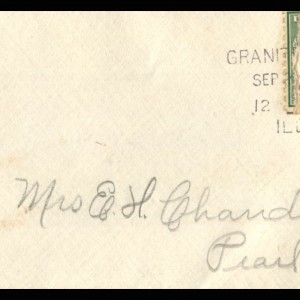 GRANIT
SEP
12
ILL
Mrs E. H. Chand
Pearl